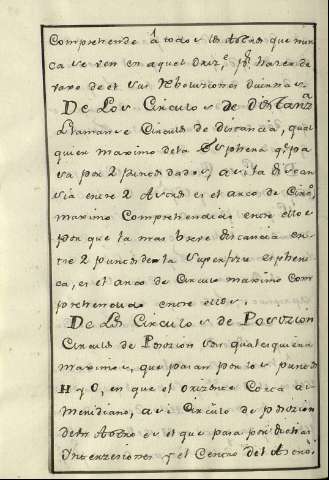 Comprehende à todos los Astros que nun
ca se ven en aquel Oriz.e, pr. hazer de
vaxo de el sus Reboluciones diurnas.
De Los Circulos de distanz.a
Llamanse Circulos de distancia, qual
quier maximo dela Sphera q.e pa
sa por 2 puntos dados, asi la distan
sia entre 2 Astros es el arco de Circ.o
maximo Comprehendido entre ellos
por que la mas breve distancia en
tre 2 puntos de la superfizie espheri
ca, es el arco de Circulo maximo Com
prehendido entre ellos.
De Los Circulos de Posizion
Circulos de Posizion son qualesquiera
maximos, que pasan por los puntos
H y O, en que el orizonte Corta al
meridiano, asi Circulo de posizion
de un Astro es el que pasa por dichas
Yntersesiones y el Centro del Astro.